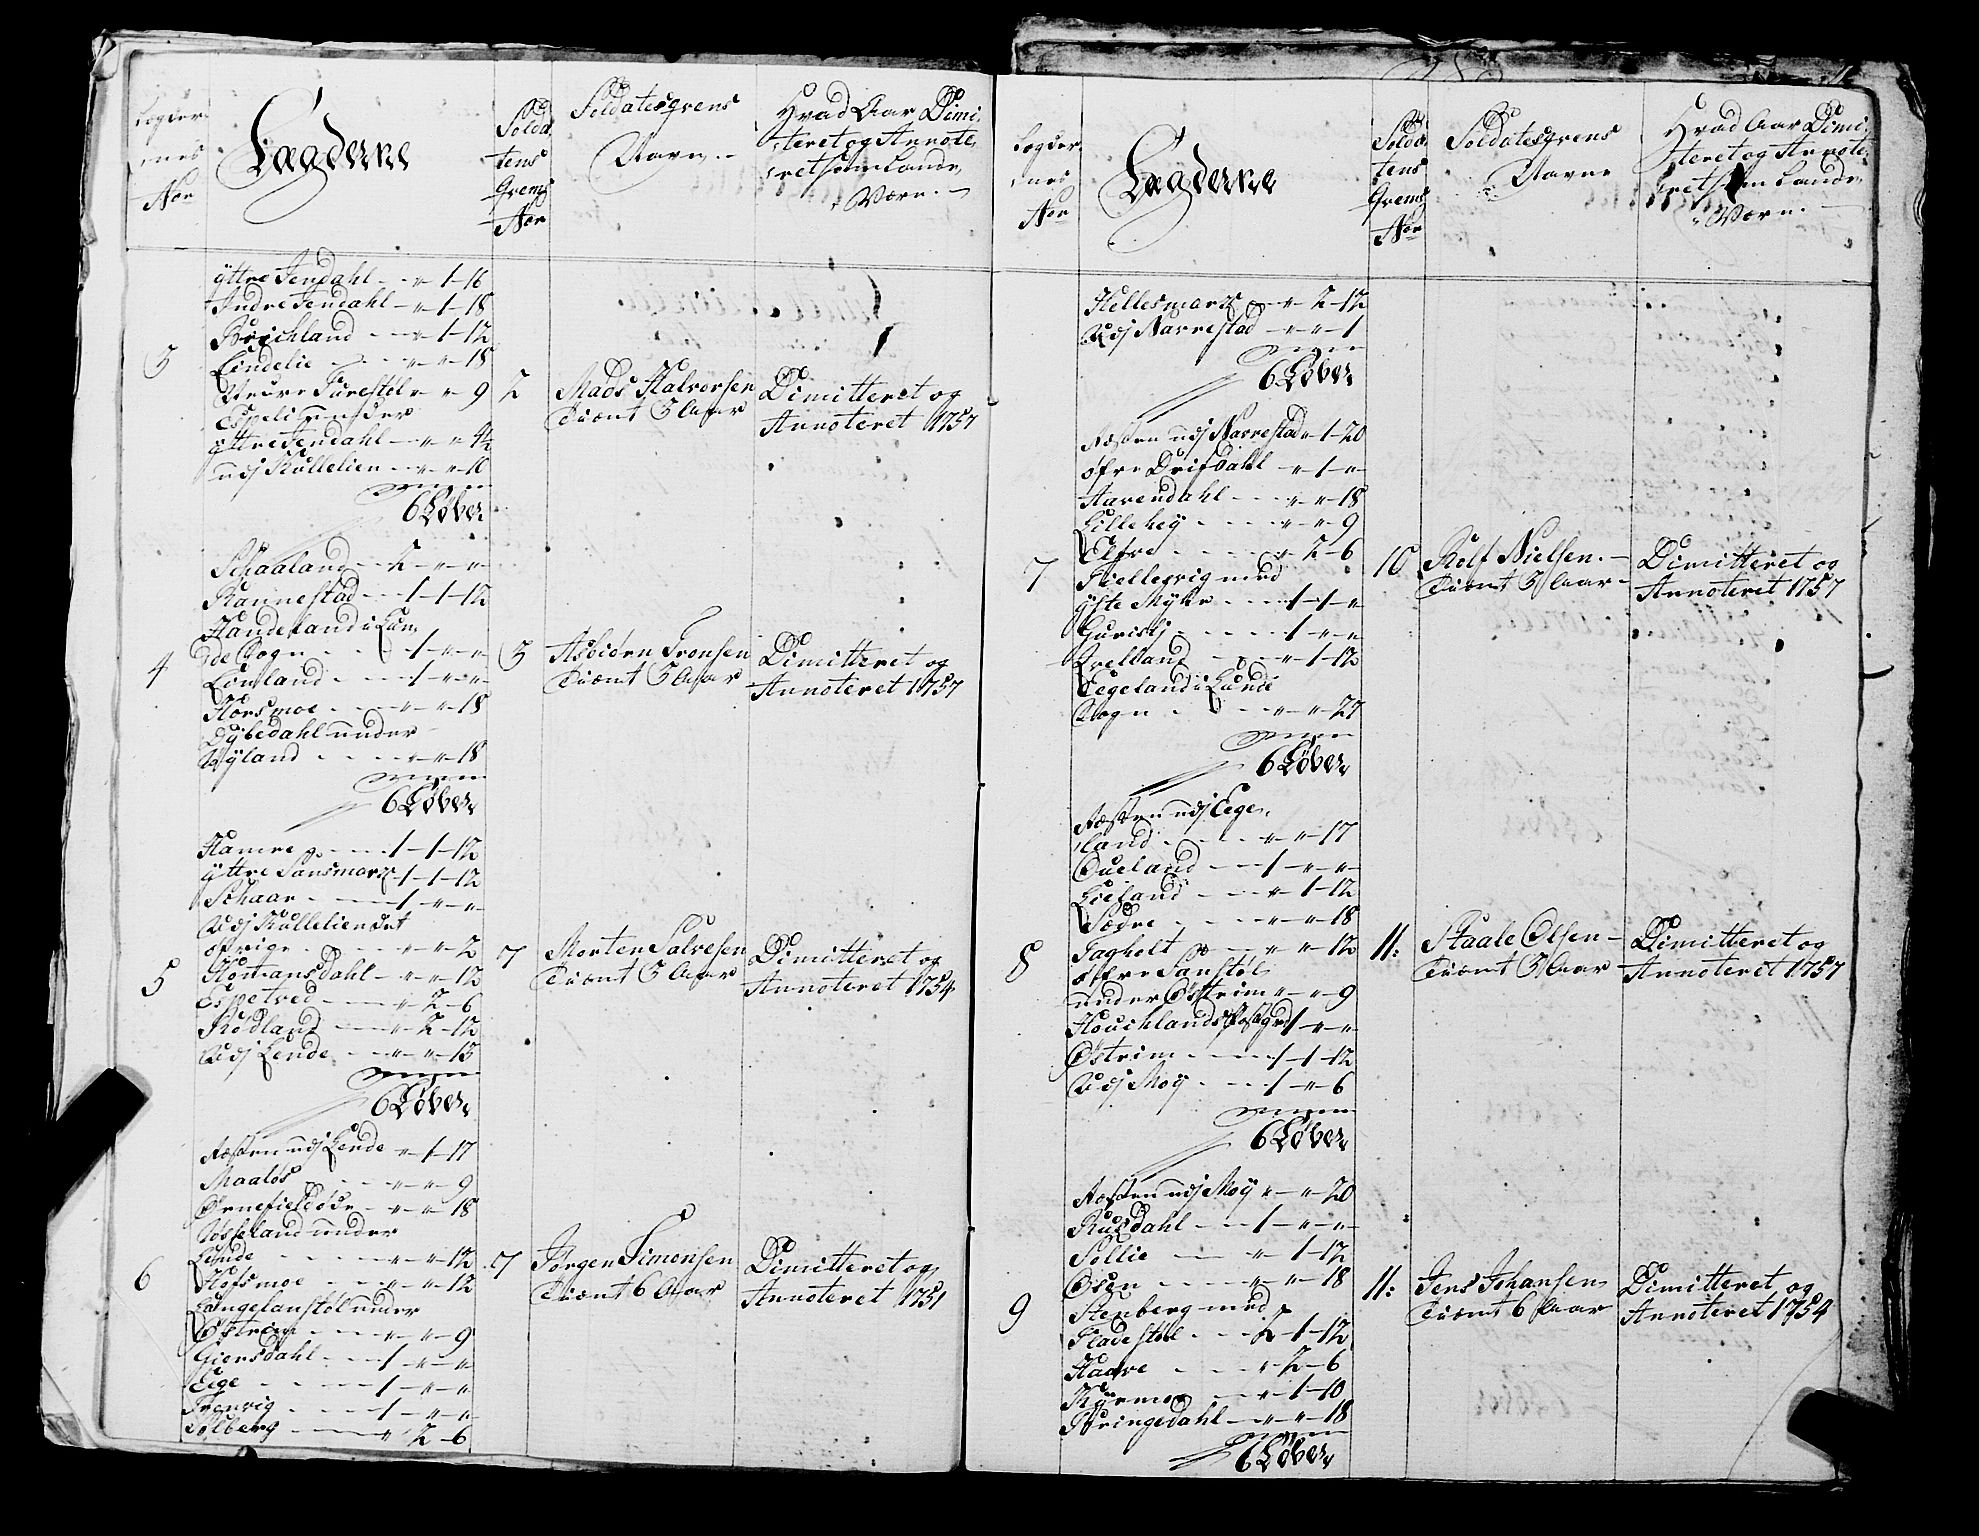 Lægder
nes
Nor
Lægderne
Solda
tens
Grens
Nor
Soldatesgrens
Navn.
Hvad Aar Dimi,
teret og Annote,
ret som Lands,
Værn.
ÿttre Sendahl - " - 1 - 16
Andre Sendahl - " - 1 - 18
Birchland - " - 1 - 12
Lindelie - " - " - 18
5
Turestøl " - " 9
Espeli under
ÿttre Sendahl - " - " 4½
udj Kullelien - " - " - 10
6 Løber
2
Mads Halvorsen
Tiænt 5 Aar
Dimitteret og
Annoteret 1757
Schaaland - 2 - " - "
Rannestad - 1 - 1 - 12
Handeland i Lun,
de Sogn - 1 - " - "
4
Lönland - 1 - " - "
Horsmoe - " - " - 18
Dÿbedahl under
Nÿland - " - " - 18
6 Løber
5
Asbiörn Tronsen
Tiænt 5 Aar
Dimitteret og
Annoteret 1757
Hamre - 1 - 1 - 12
ÿttre Sansmark - 1 - 1 - 12
Schaar - 1 - " - "
Udj Kullelien det
øfrige - " - " - 2
5
Homansdahl - " - " - 12
Espetved - " - 2 - 6
Rödland - " - 2 - 12
Udj Lende - " - " - 13
6 Løber
7
Morten Salvesen
Tiænt 5 Aar
Dimitteret og
Annoteret 1754
Resten udj Lende " - 1 - 17
Maalös - " - " - 9
Ornefieldöde - " - " - 18
under
Lunde - " - " - 12
6
Hofsmoe - " - " - 12
Langelandstøl under
Östrem - " - " - 9
Giersdahl - 1 - " - "
Eege - 1 - " - "
Tronvig - 1 - " - "
Sölberg - " 2 - 6
7
Jörgen Simonsen
Tiænt 6 Aar
Dimitteret og
Annoteret 1751
Lægder
nes
Nor
Lægderne
Solda
tens
Grens
Nor
Soldatesgrens
Navn
Hvad Aar Dimi,
teret og Annote,
ret som Lands,
Værn.
Hellesmark - " 2 - 12
Udj Navrestad - " - " - 1
6 Løber
Resten udj Navrestad " - 1 - 20
øfre Drifdahl - " - 1 - "
Aavendahl - " - " - 18
Lillehej - " - " - 9
Elfre - " - 2 - 6
7
Skiellevig med
ÿste Mÿhre - 1 - 1 - "
Guristj - 1 - " - "
Qvelland - " - 1 - 12
Eegeland i Lunde
Sogn - " - " - 27
6 Løber
10
Rolf Nielsen.
Tiænt 5 Aar
Dimitteret og
Annoteret 1757
Resten udj Eege,
land - " - " - 17
Oueland - 1 - " - "
Lieland - " - 1 - 12
Södre - " - " - 18
8
Fagholt - " - " - 12
øfre Sanstøl
under Östrim " - " - 9
Houchlands 1 - " - "
Östrim - 1 - 1 - 12
Udj Moÿ - 1 - " - 6
6 Løber
11:
Staale Olsen
Tiænt 5 Aar
Dimitteret og
Annoteret 1757
Resten udj Moÿ " - " - 20
Rusdahl - 1 - " - "
Sollie - " - 1 - 12
Osen - " - " - 18
9
Stenberg med
Fladestøl - 2 - 1 - 12
Haave - " - 2 - 6
Kÿrmoe - " - 1 - 10
Beringedahl - " - " - 18
6 Løber
11:
Jens Johansen
Tiænt 6 Aar
Dimitteret og
Annoteret 1754